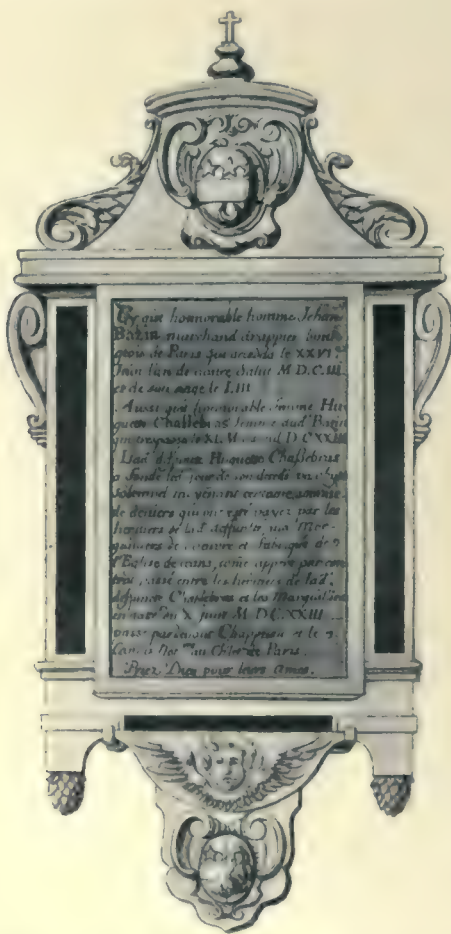 Cy gist honnorable homme Jehan
Bazin marchand drappier bour-
geois de Paris qui deceda le XXVI.e
Juin l'an de nostre salut M D.C.III
et de son aage le LIII
Aussi gist honnorable femme Hu-
guette Chaslebras femme dud. Bazin
qui trespassa le XI. M D CXXIII
Lad. deffuncte Huguette Chaslebras
a fondé les jour de vendredi un
sollennel moyenant certaine somme
de deniers qui ont esté payez par les
heritiers de lad. deffuncte, aux Mar-
guilliers de l'œuvre et fabrique de
l'Eglise de ceans, comme appert par con-
tract passé entre les heritiers de lad.
deffuncte Chaslebras et les Marguilliers
en datte du X juin M DC.XXIII
passé pardevant Chappelain et le
Camus Not.res au Ch.let de Paris.
Priez Dieu pour leurs ames.